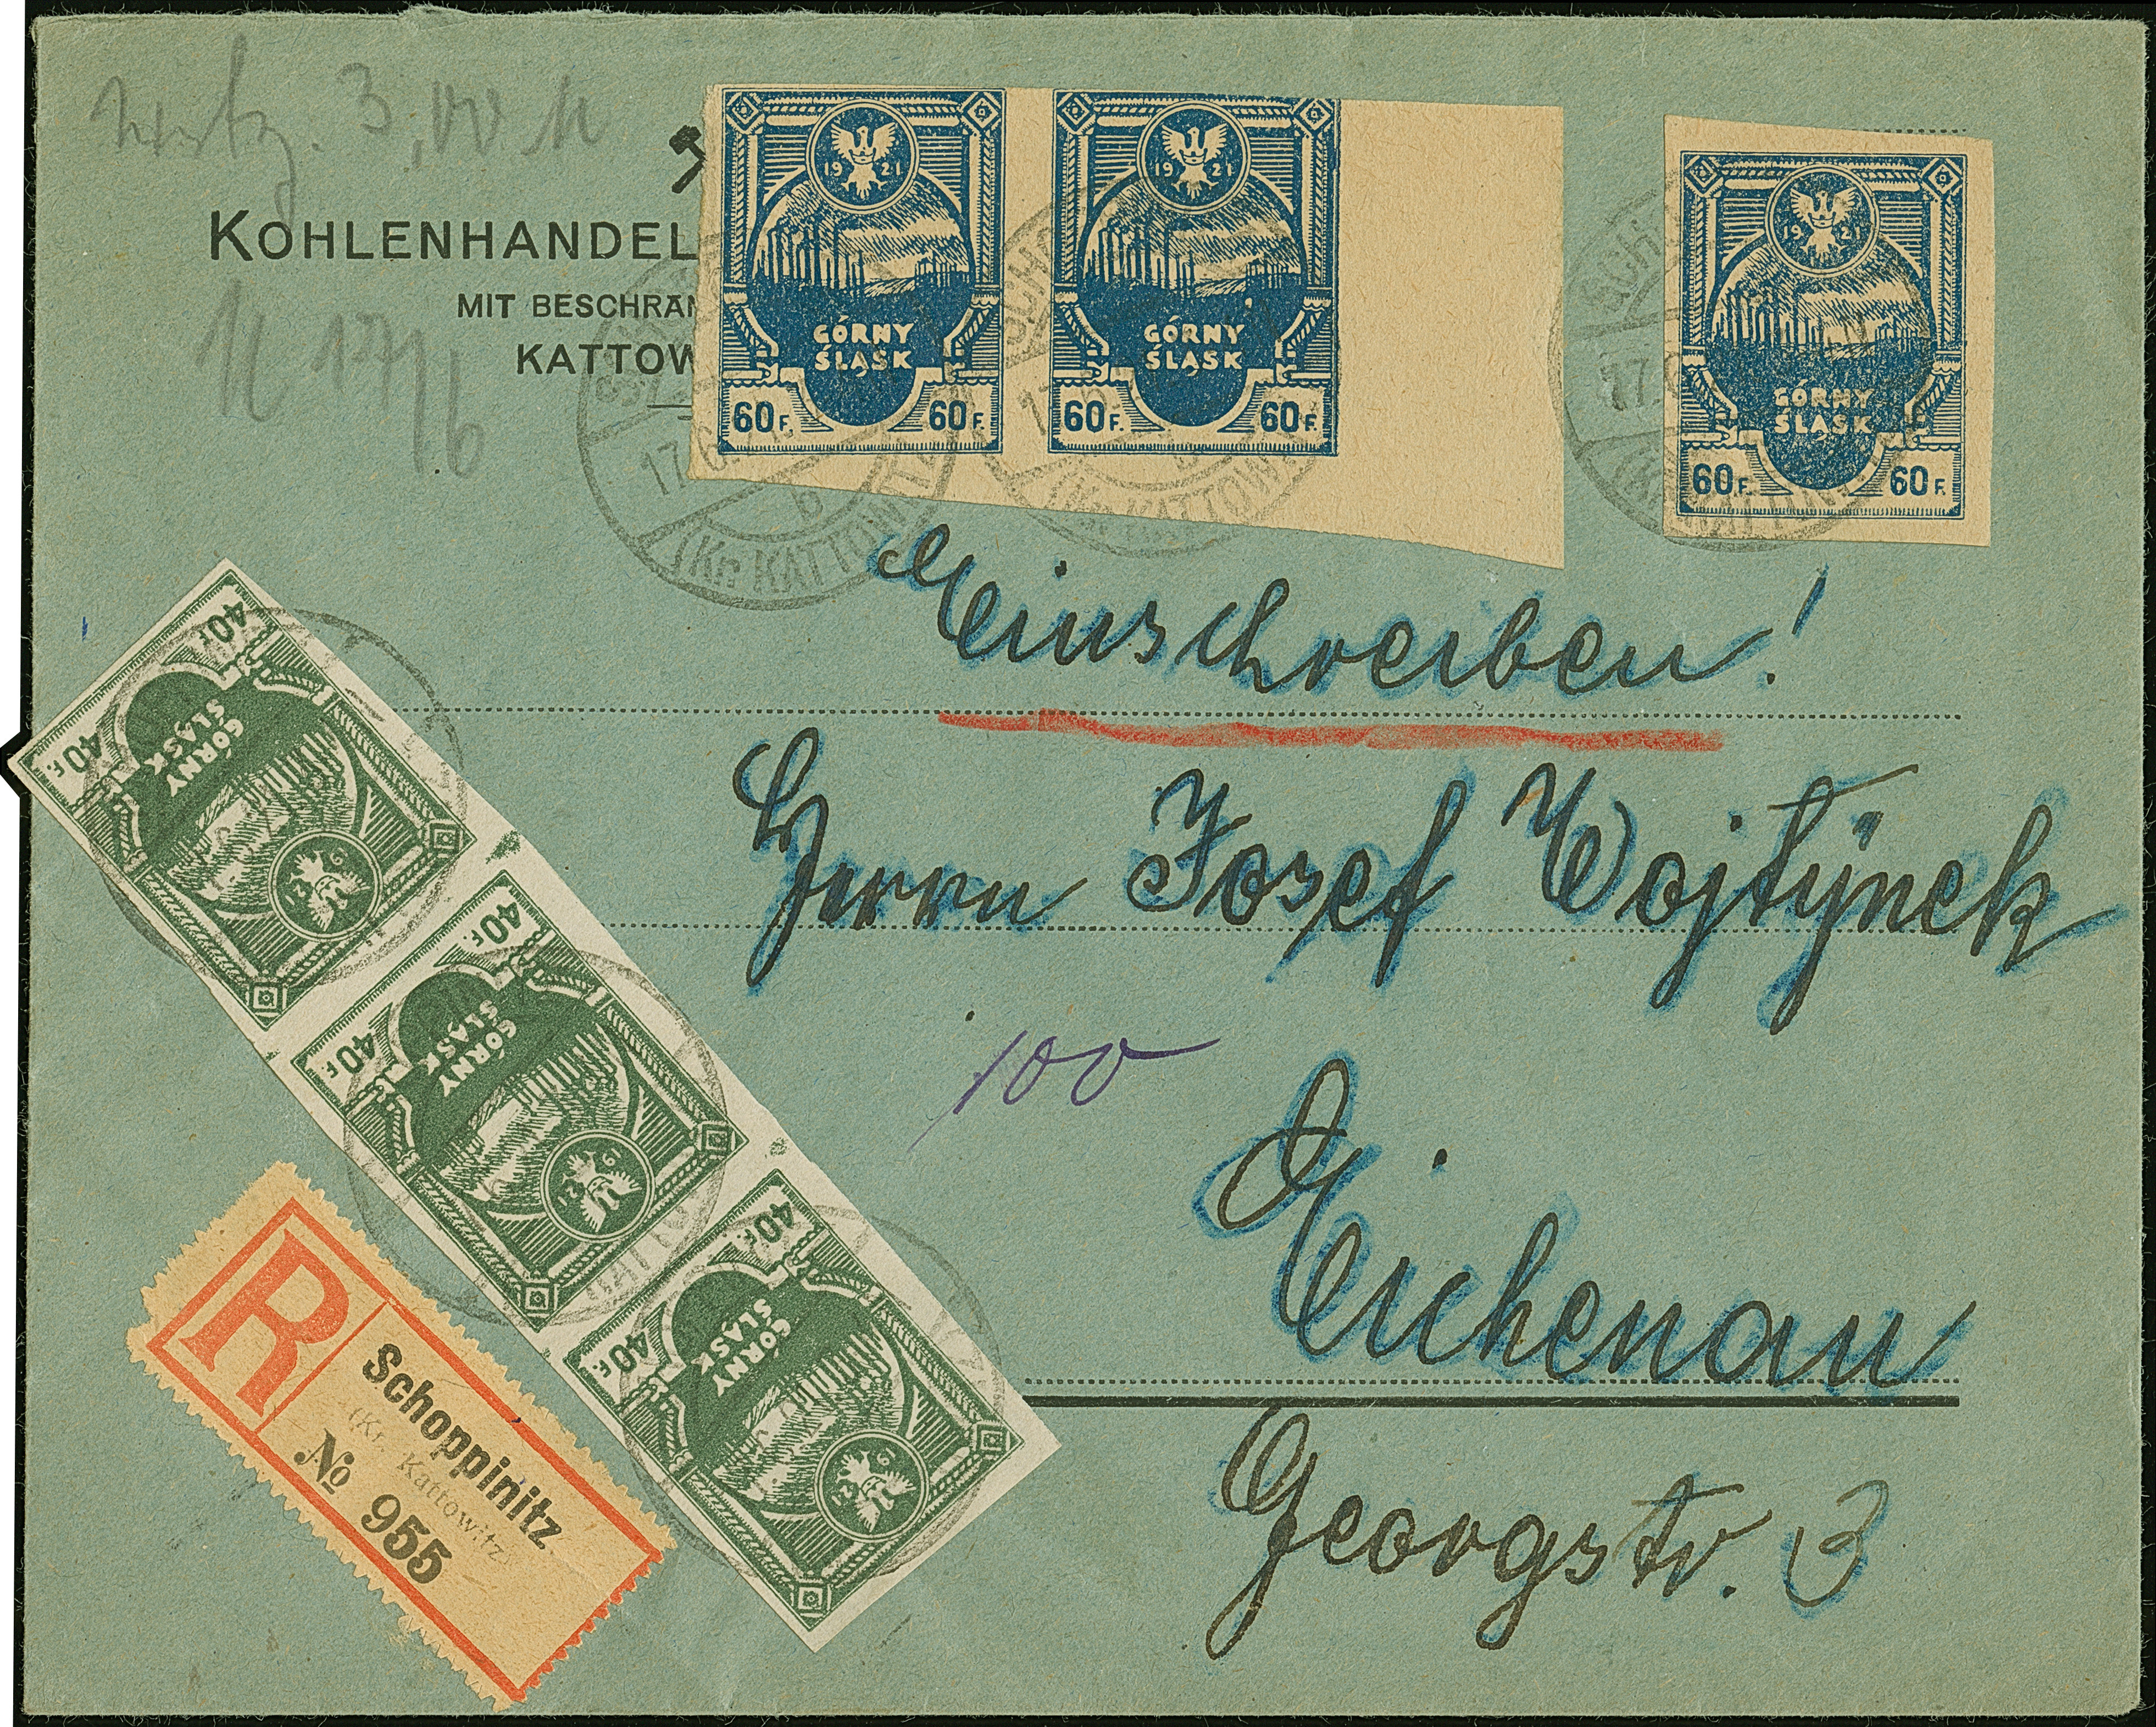 3,00 M
KOHLENHANDEL
MIT BESCHRÄN
KATTOW
17/6
19 21
GÓRNY
ŚLĄSK
60 F. 60 F.
19 21
GÓRNY
ŚLĄSK
60 F. 60 F.
19 21
GÓRNY
ŚLĄSK
60 F. 60 F.
17.6.
b
(Kr. KATTOW
(Kr. KATTOW
17.
Einschreiben!
Herrn Josef Wojtÿnek
100
Eichenau
Georgstr. 3
40 F. 40 F.
GÓRNY
ŚLĄSK
40 F. 40 F.
GÓRNY
ŚLĄSK
40 F. 40 F.
GÓRNY
ŚLĄSK
R
Schoppinitz
(Kr. Kattowitz)
No 955